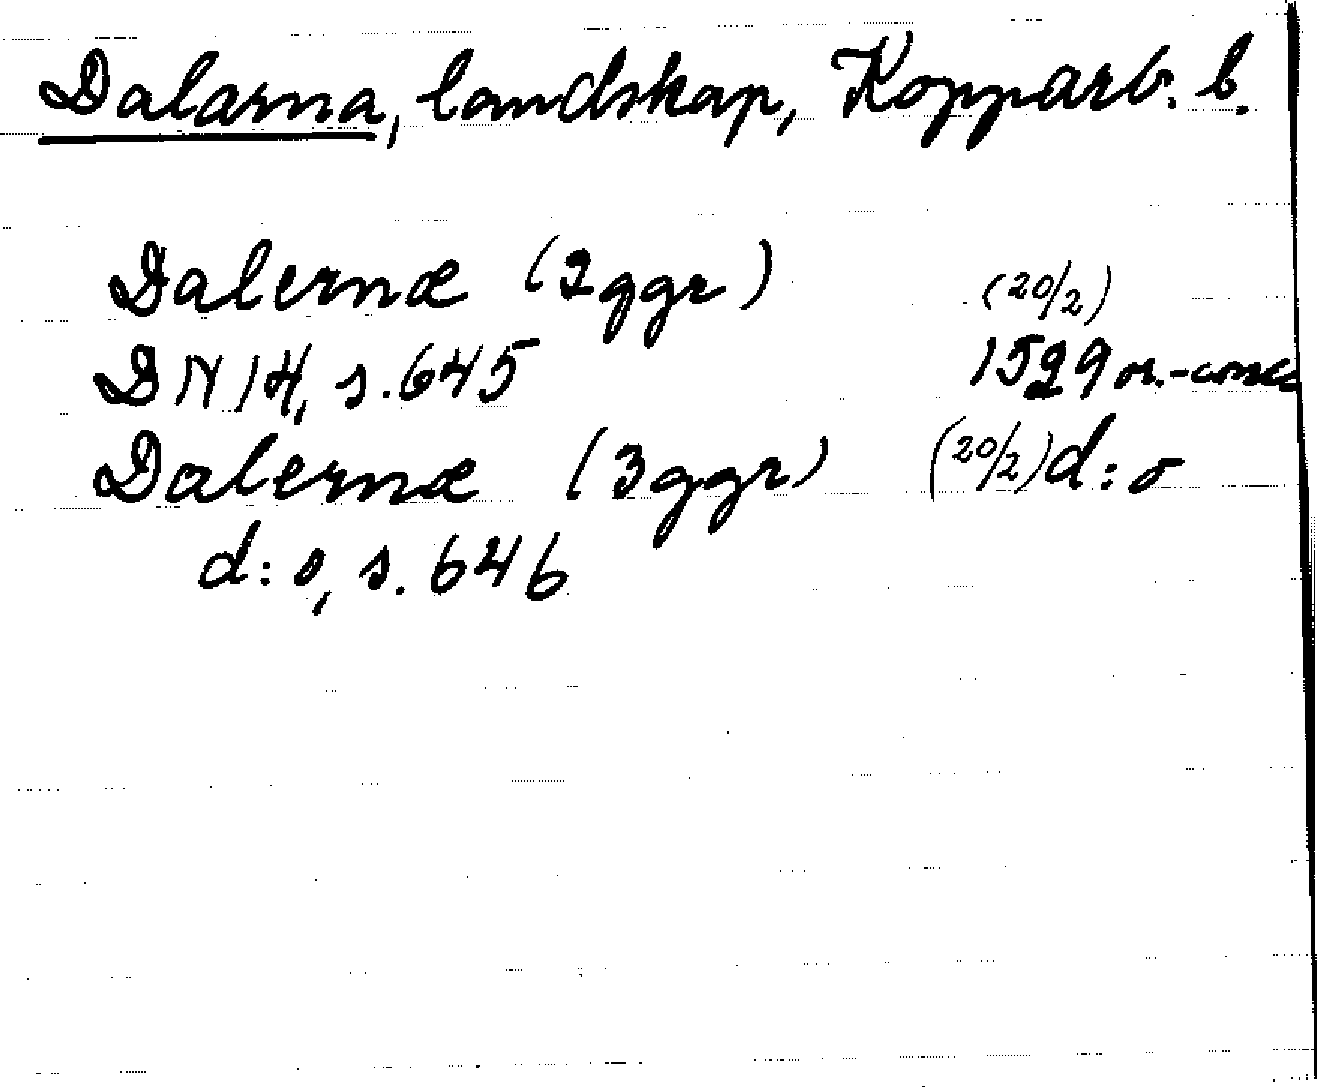 Dalarna, landskap, Kopparb. l.
Dalernæ (2 ggr) (20/2)
DN IH, s. 645 1529 or.-conc
Dalernæ (3 ggr) (20/2) d:o
d:o, s. 646